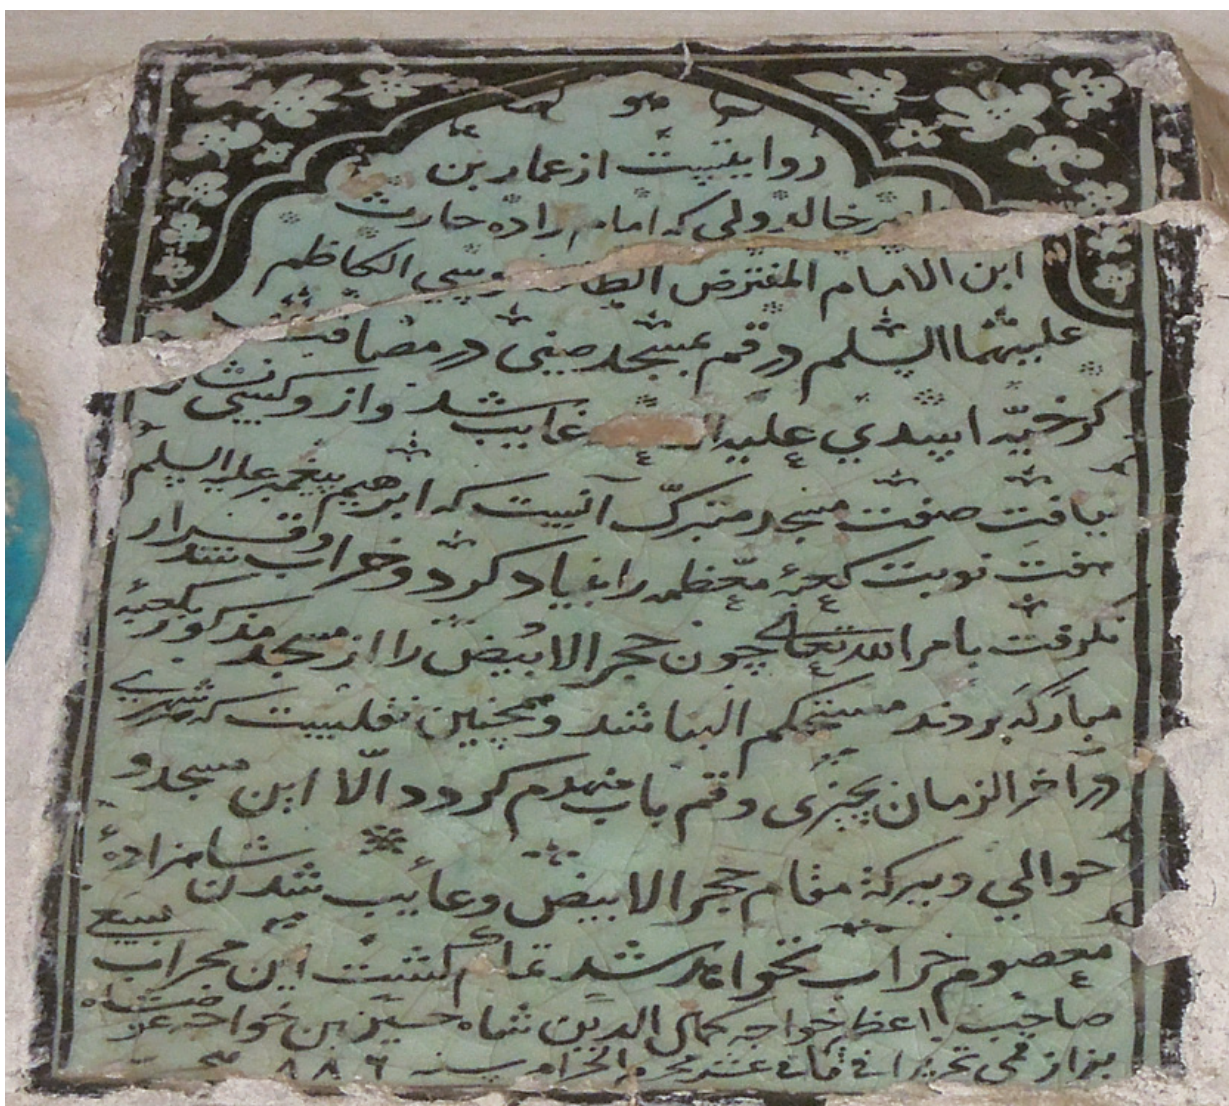 روایتیست از عمار بن
خالد ولی که امام زاده حارث
ابن الامام المفترض موسی الکاظم
علیهما السلم در قم بمسجد صفی در مضافت
کرخیّه علیه غایب شد و از و کسی نشان
نیافت صفت مسجد متبرّک آنست که ابرهیم پیغمبر علیه السلم
هفت نوبت کعبۀ معّظمه را بنیاد کرد و خراب شد و قرار
نکرفت بامر الله تعالی چون حجر الابیض را از مسجد مذکور بکعبۀ
مبارکه بردند مستحکم البنا شد و همچنین نقلیست که شهر ری
در آخر الزمان و قم باب منهدم کردد الّا این مسجد و
حوالی و ببرکۀ مقام حجر الابیض و غایب شدن شاهزادۀ
معصوم خراب نخواهد شد تمام کشت این محراب بسیع
صاحب اعظم خواجه کمال الدین شاه حسین بن خواجه
بزاز قمی تحریرا فی محرم الحرام سنه ۸۸۶